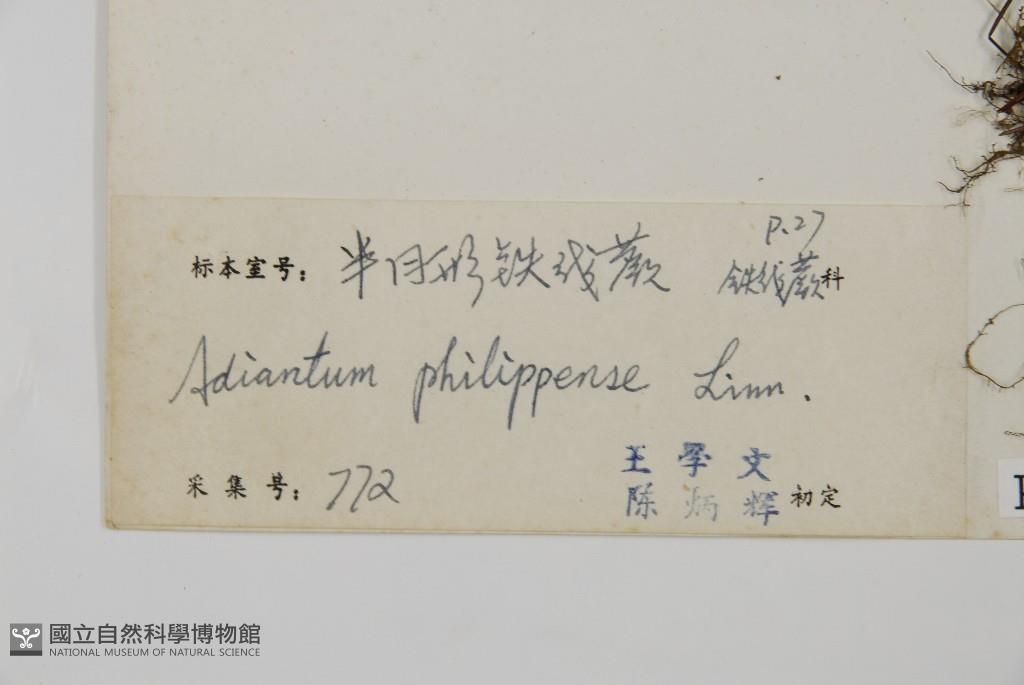 P.27
标本室号：半月形铁线蕨 铁线蕨科
Adiantum philippense Linn.
王學文
采集号：772 陈炳辉 初定
國立自然科學博物館
NATIONAL MUSEUM OF NATURAL SCIENCE